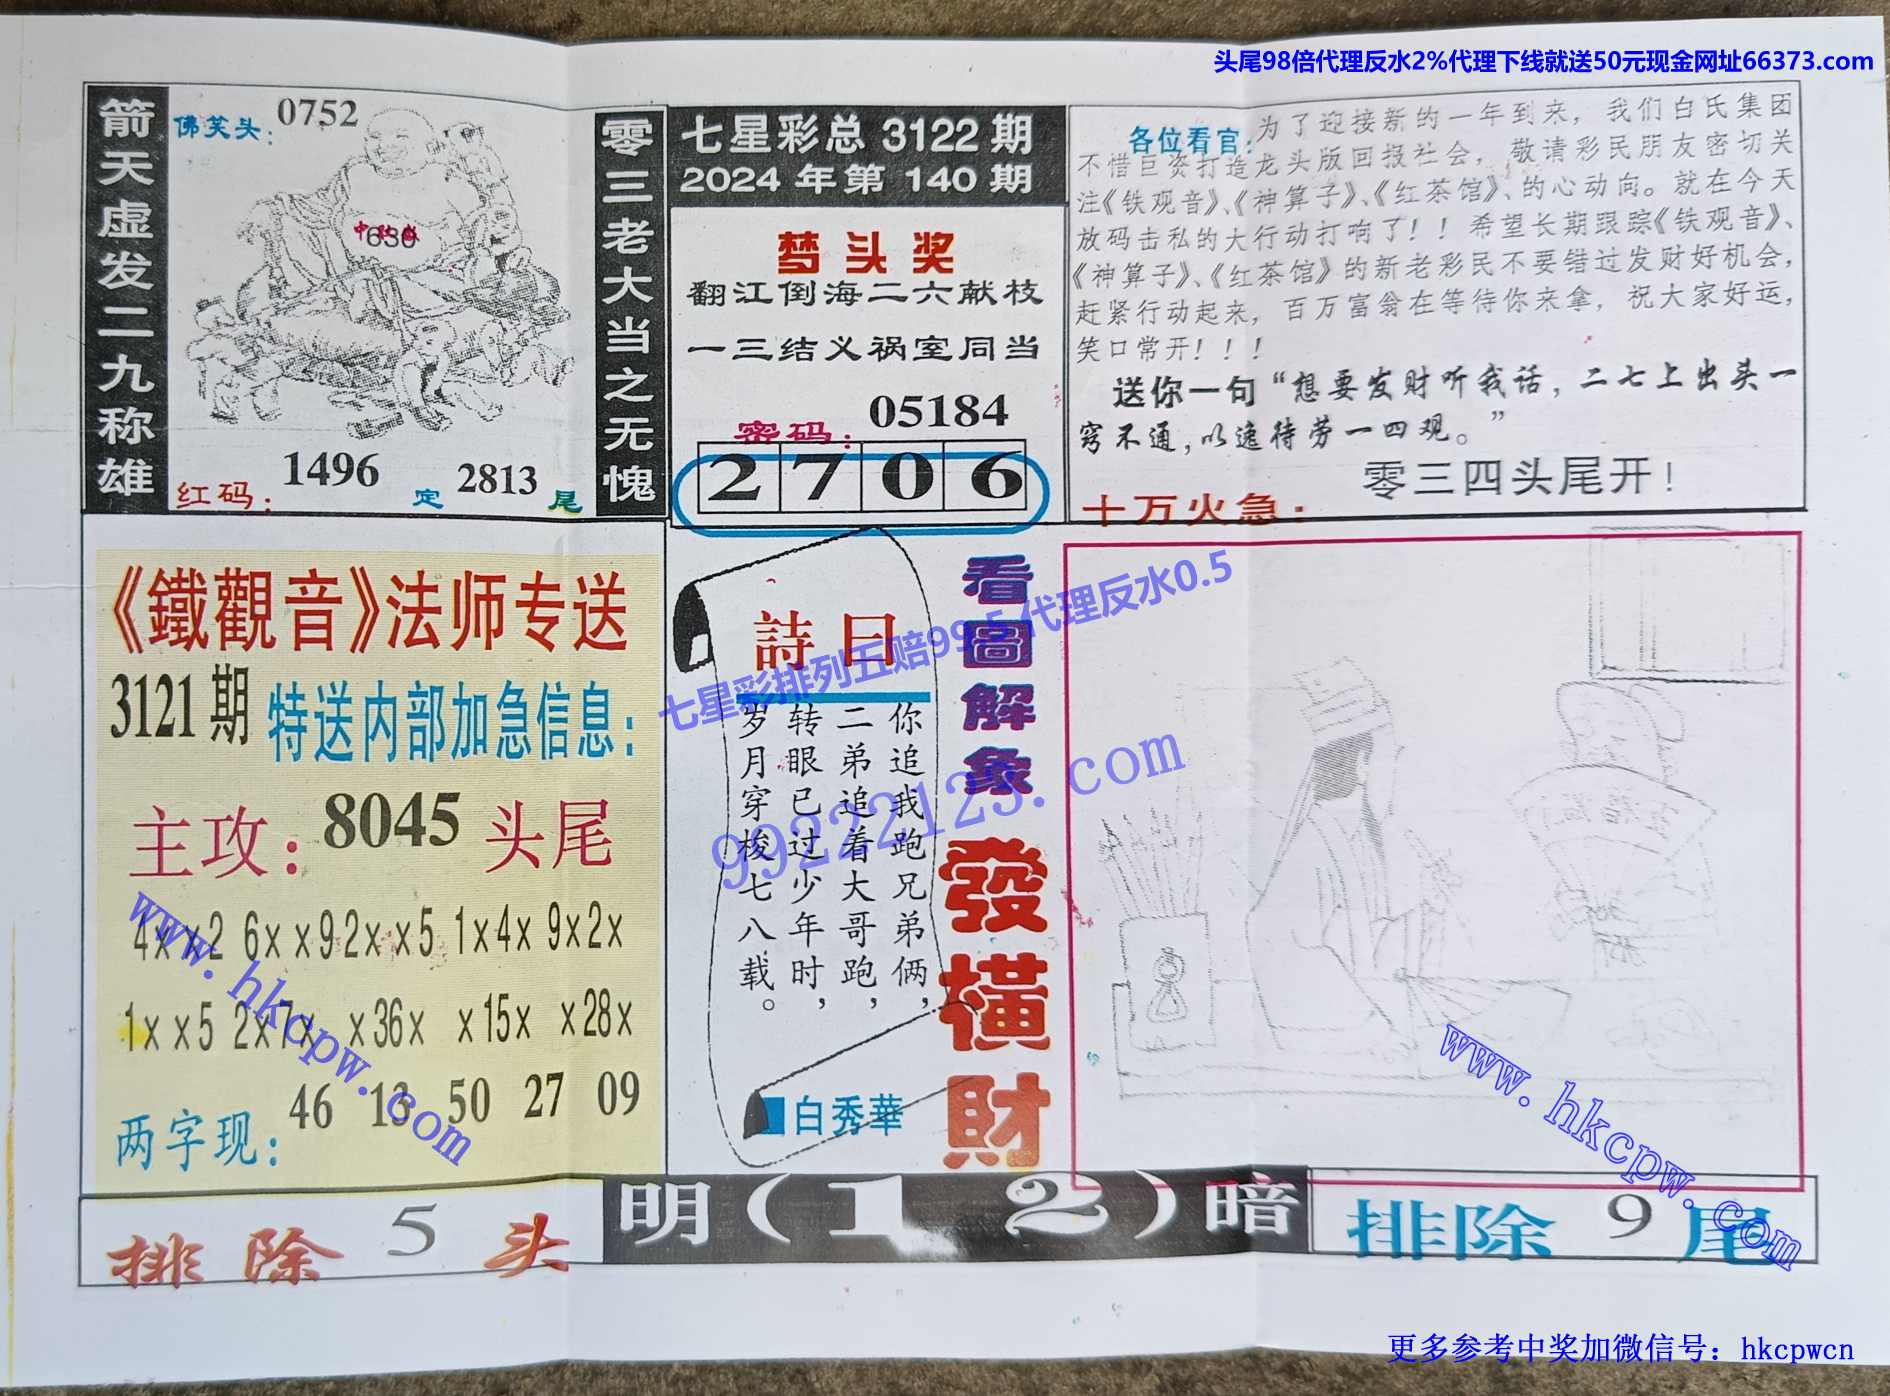 头尾98倍代理反水2%代理下线就送50元现金网址66373.com
箭天虚发二九称雄
佛笑头：0752
630
红码：1496 定 2813 尾
零三老大当之无愧
七星彩总 3122 期
2024 年第 140 期
梦头奖
翻江倒海二六献枝
一三结义祸室同当
密码：05184
2 7 0 6
各位看官：为了迎接新的一年到来，我们白氏集团
不惜巨资打造龙头版回报社会，敬请彩民朋友密切关
注《铁观音》、《神算子》、《红茶馆》、的心动向。就在今天
放码击私的大行动打响了！！希望长期跟踪《铁观音》、
《神算子》、《红茶馆》的新老彩民不要错过发财好机会，
赶紧行动起来，百万富翁在等待你来拿，祝大家好运，
笑口常开！！！
送你一句“想要发财听我话，二七上出头一
窍不通，以逸待劳一四观。”
十万火急：零三四头尾开！
《鐵觀音》法师专送
3121期 特送内部加急信息：
主攻：8045 头尾
4××2 6××9 2××5 1×4× 9×2×
1××5 2×7× ×36× ×15× ×28×
两字现：46 13 50 27 09
詩曰
你追我跑兄弟俩，
二弟追着大哥跑，
转眼已过少年时，
岁月穿梭七八载。
白秀華
看圖解象
發橫財
七星彩排列五赔99.5代理反水0.5
99222123.com
www.hkcpw.com
www.hkcpw.com
排除 5 头
明（1 2）暗
排除 9 尾
更多参考中奖加微信号：hkcpwcn